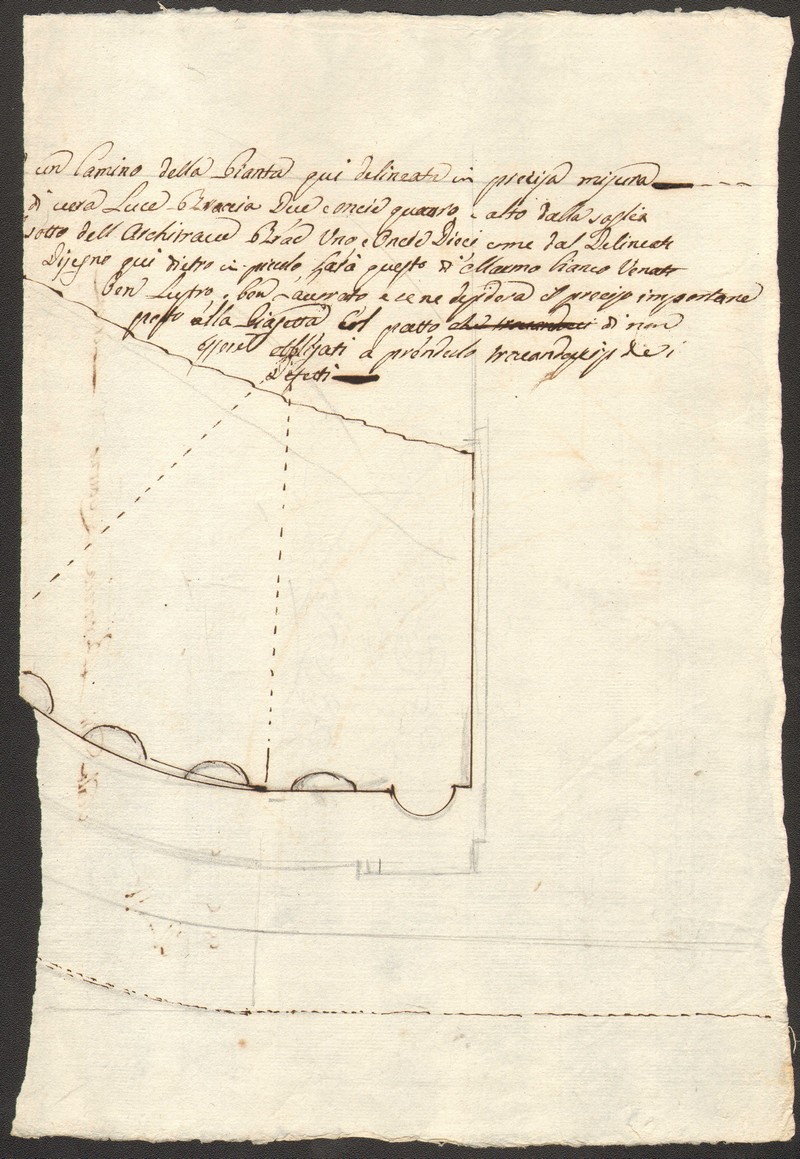 un Camino della Pianta qui delineata in precisa misura
di vera Luce Braccia Due e oncie quattro, e alto dalla soglia
sotto dell'Architrave Brac Uno e Oncie Dieci come dal Delineato
Disegno qui dietro in picolo, sarà questo di Marmo bianco Venato
ben Lustro, e ben lavorato e ce ne desidera il preciso importare
posto alla Col patto di non
essere obbligati a prenderlo i
difetti